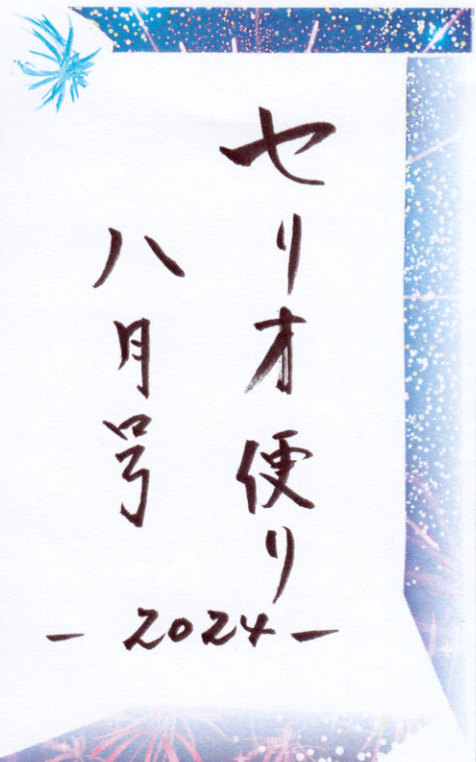 セリオ便り
八月号
-2024-